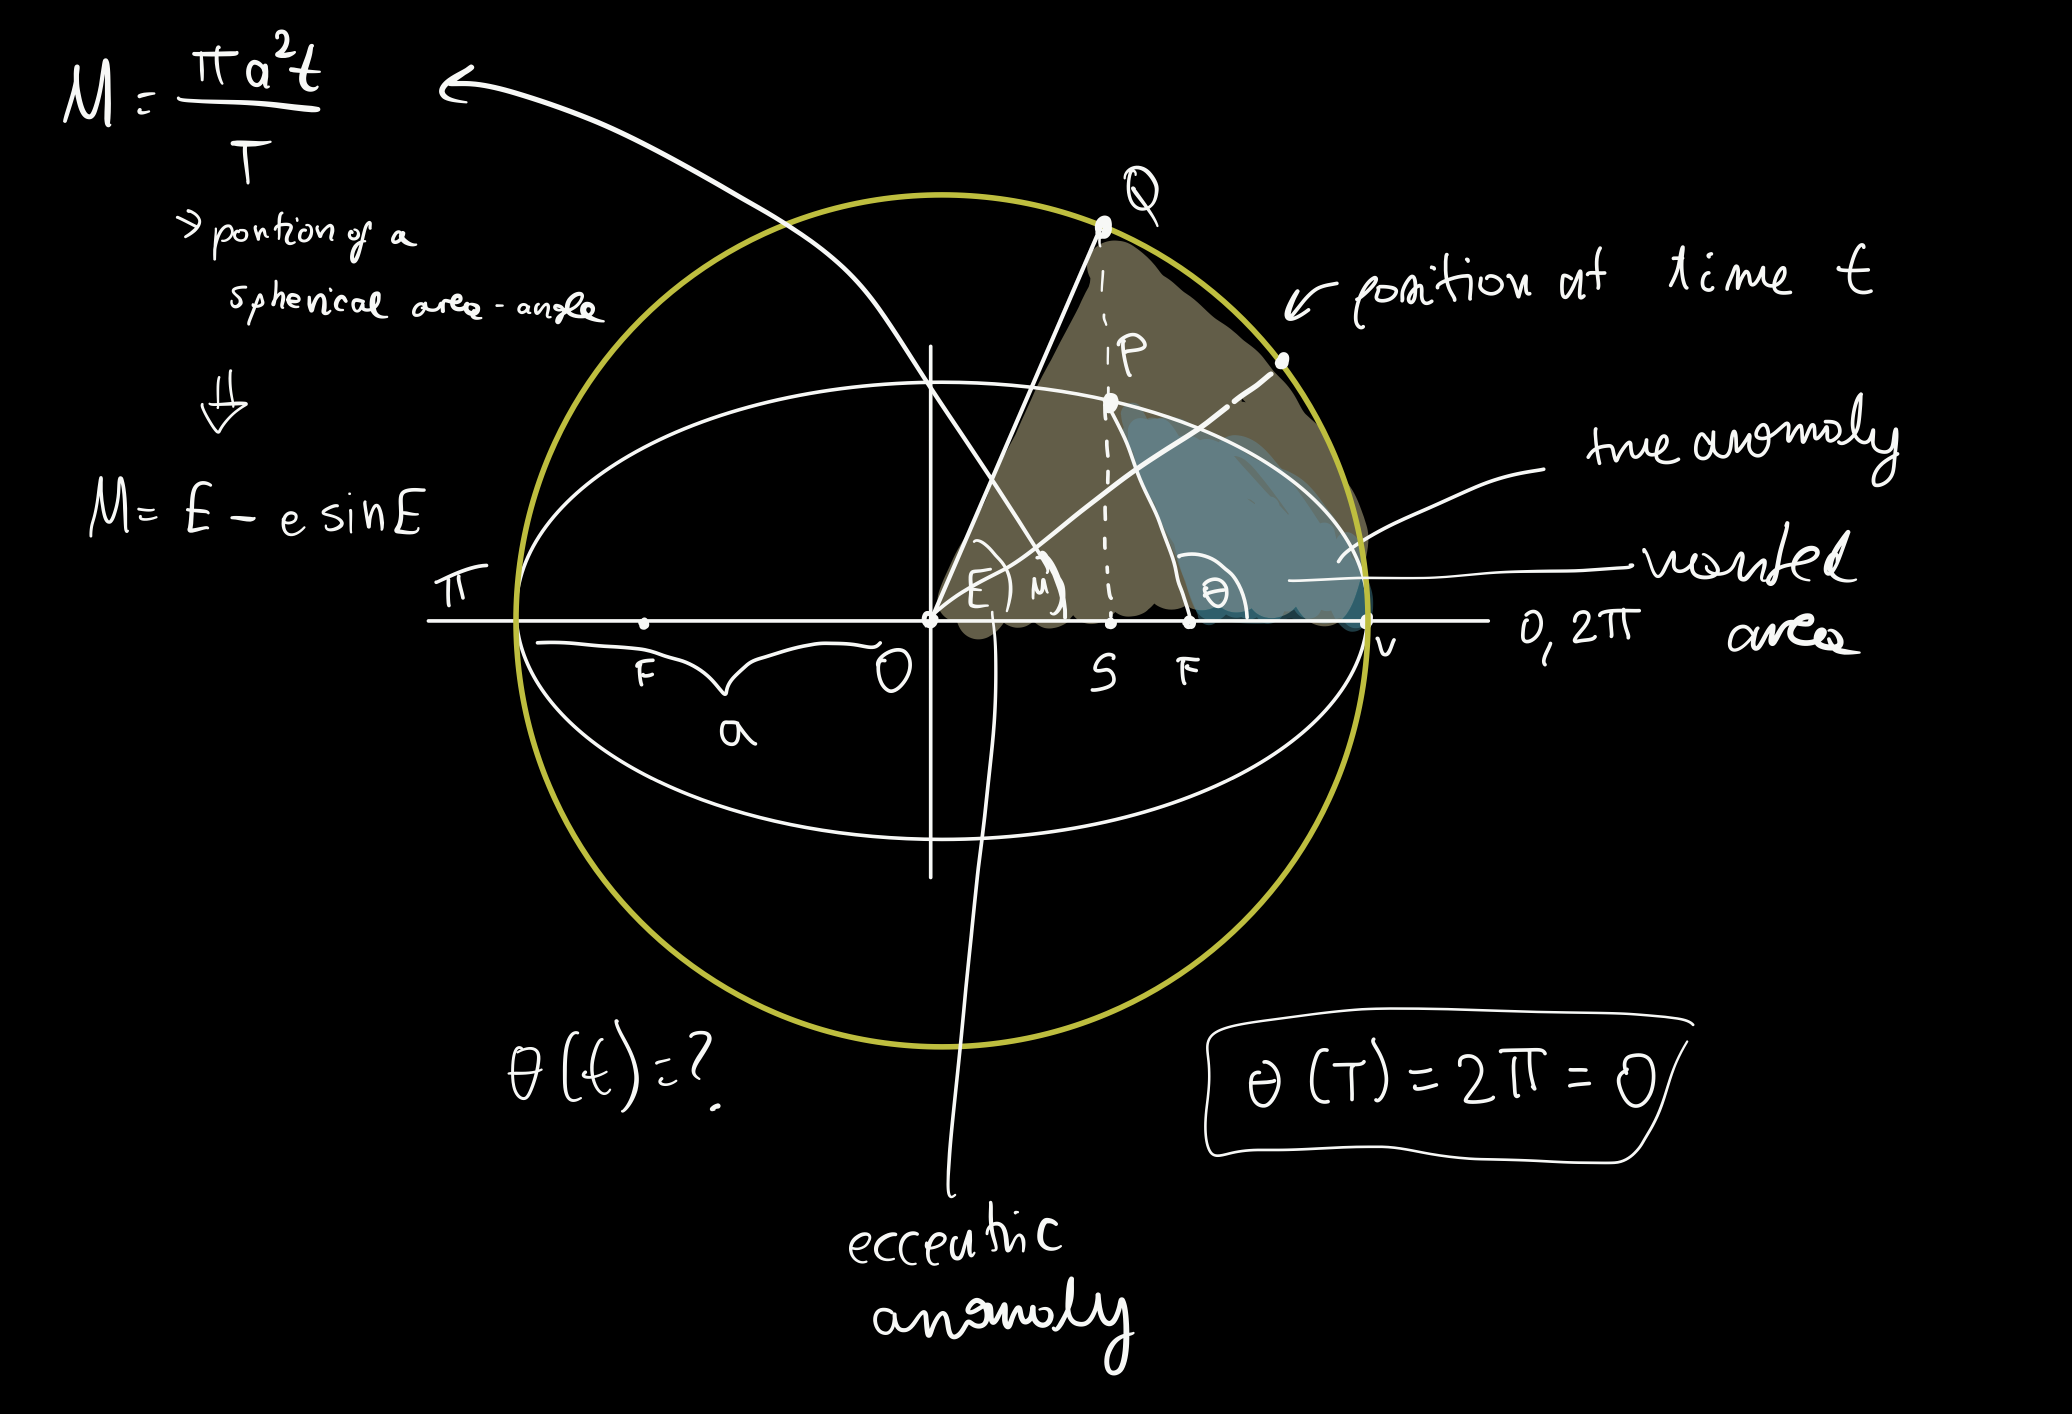 M = πa²t / T
→ portion of a
spherical area-angle
⇓
M = E - e sinE
Q
position at time t
P
true anomaly
wanted
area
π
E
M
θ
0, 2π
F
O
S
F
V
a
θ(t)=?
θ(T) = 2π = 0
eccentric
anomaly